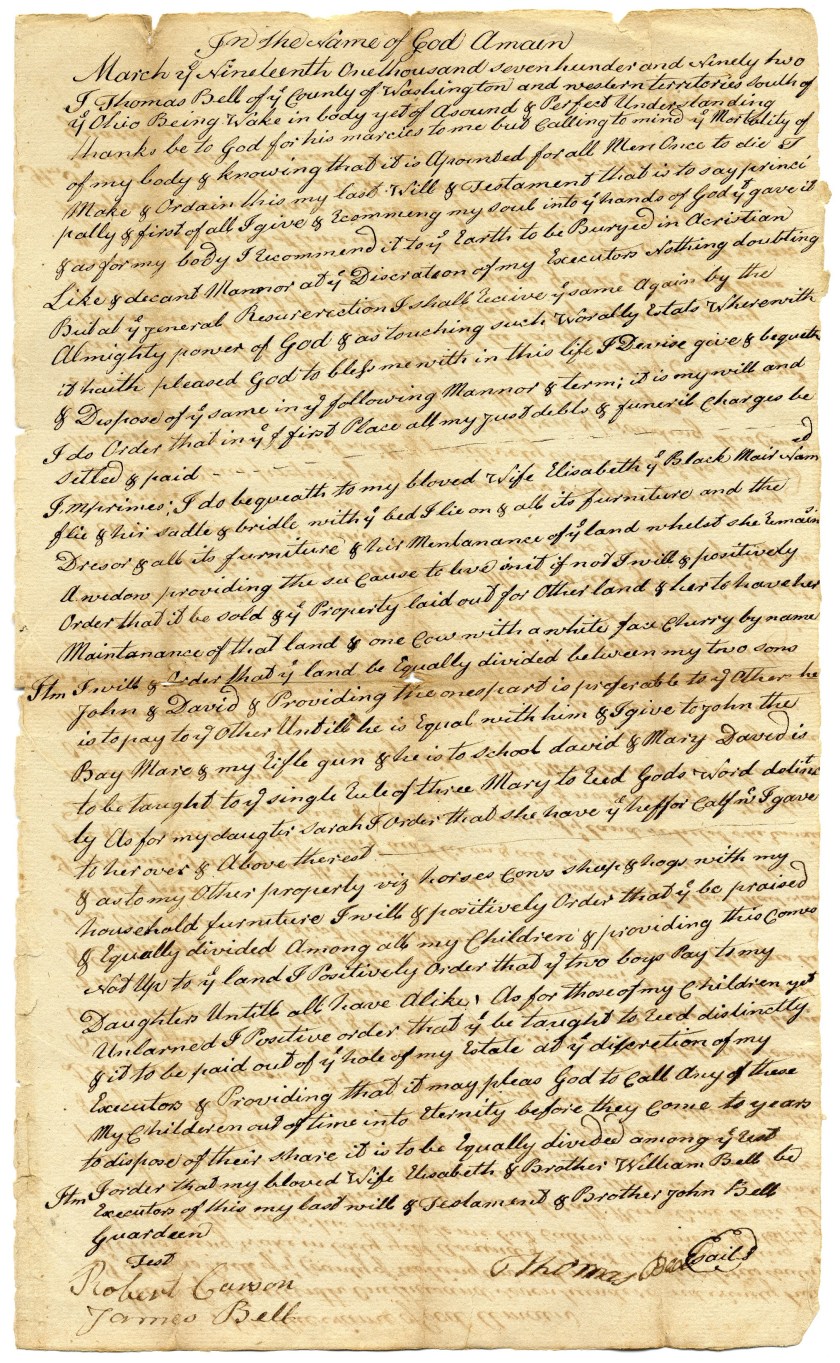 In the Name of God Amain
March yᵉ Nineteenth Onethousand sevenhunder and Ninety two
I Thomas Bell of yᵉ County of Washington and western territories south of
yᵉ Ohio Being Wake in body yet of Asound & Perfect Understanding
thanks be to God for his marcies to me but Calling to mind yᵉ Mortality of
of my body & knowing that it is Apointed for all Men Once to die I
Make & Ordain this my last Will & Testament that is to say princi
pally & first of all I give & Ecommeng my soul into yᵉ hands of God yᵗ gave it
& as for my body I Recommend it to yᵉ Earth to be Buryed in Acristian
Like & decant Mannor at yᵉ Discration of my Executors Nothing doubting
But at yᵉ jeneral Resurerection I shall Receive yᵉ same Again by the
Almighty power of God & as touching such Worably Estats Wherewith
it haith pleased God to bless me with in this life I Devise give & bequeth
& Dispose of yᵉ same in yᵉ following Mannor & term; it is my will and
I do Order that in yᵉ first Place all my just debts & funeril Charges be
settled & paid
Imprimes; I do bequeath to my bloved Wife Elisabeth yᵉ Black Mair Namᵉᵈ
flie & hir sadle & bridle with yᵉ bed I lie on & all its furniture and the
Dresor & all its furniture & hir Mentanance of yᵉ land whelst she Remains
Awedow providing the see Cause to live onit if not I will & positively
Order that it be sold & yᵉ Property laid out for Other land & her to have her
Maintanance of that land & one Cow with a white face Churry by name
Itm I will & Order that yᵉ land be Equally divided between my two sons
John & David & Providing the ones part is preferable to yᵉ Other he
is to pay to yᵉ Other Untill he is Equal with him & I give to John the
Bay Mare & my Rifle gun & he is to school david & Mary David is
to be taught to yᵉ single Rule of three Mary to Reed Gods Word distinc
ly As for my daugter sarah I Order that she have yᵉ heffor Calf wᶜ I gave
to her over & Above the rest
& as to my Other property viz horses Cows sheep & hogs with my
household furniture I will & positively Order that yᵉ be praised
& Equally divided Among all my Children & providing this Comes
Not Up to yᵉ land I Positively Order that yᵉ two boys Pay to my
Daughters Untill all have Alike, As for those of my Children yet
Unlarned I Positive order that yᵉ be taught to Reed distinctly
& it to be paid out of yᵉ hole of my Estate at yᵉ discretion of my
Executors & Providing that it may pleas God to Call Any of these
My Childeren out of time into Eternity before they Come to years
to dispose of their share it is to be Equally divided among yᵉ Rest
Itm I order that my bloved Wife Elisabeth & Brother William Bell be
Executors of this my last will & Testament & Brother John Bell
Guardeen
Test
Thomas Bell Seail
Robert Carson
James Bell